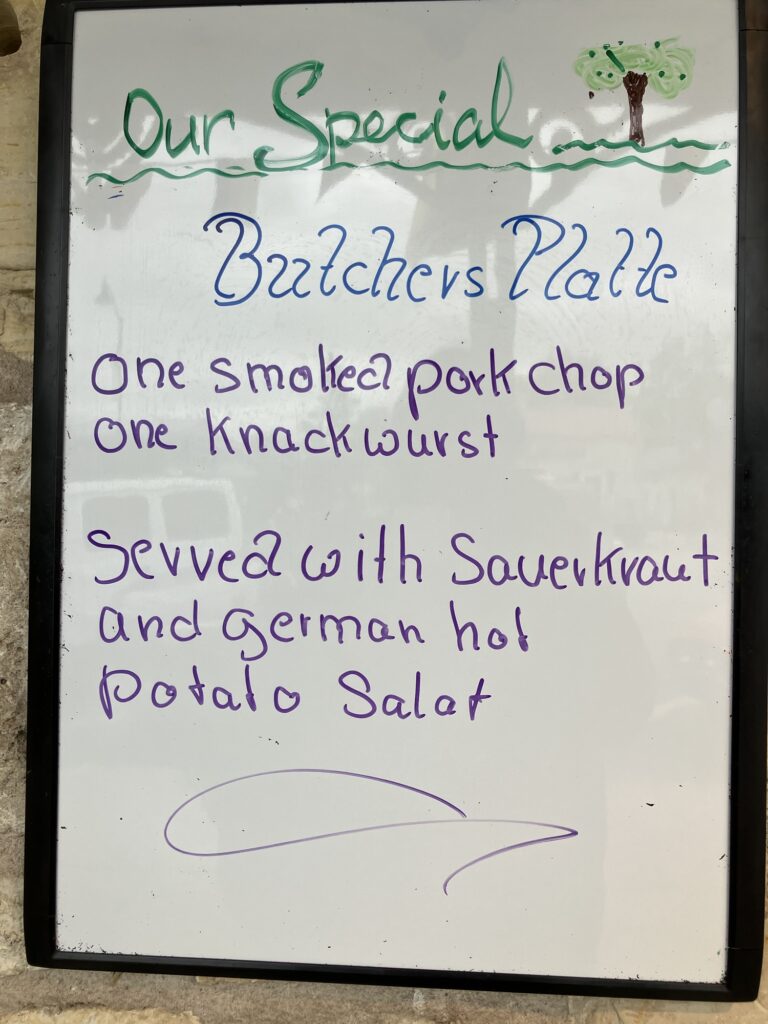 Our Special
Butchers Platte
One smoked pork chop
one Knackwurst
Served with Sauerkraut
and german hot
potato Salat